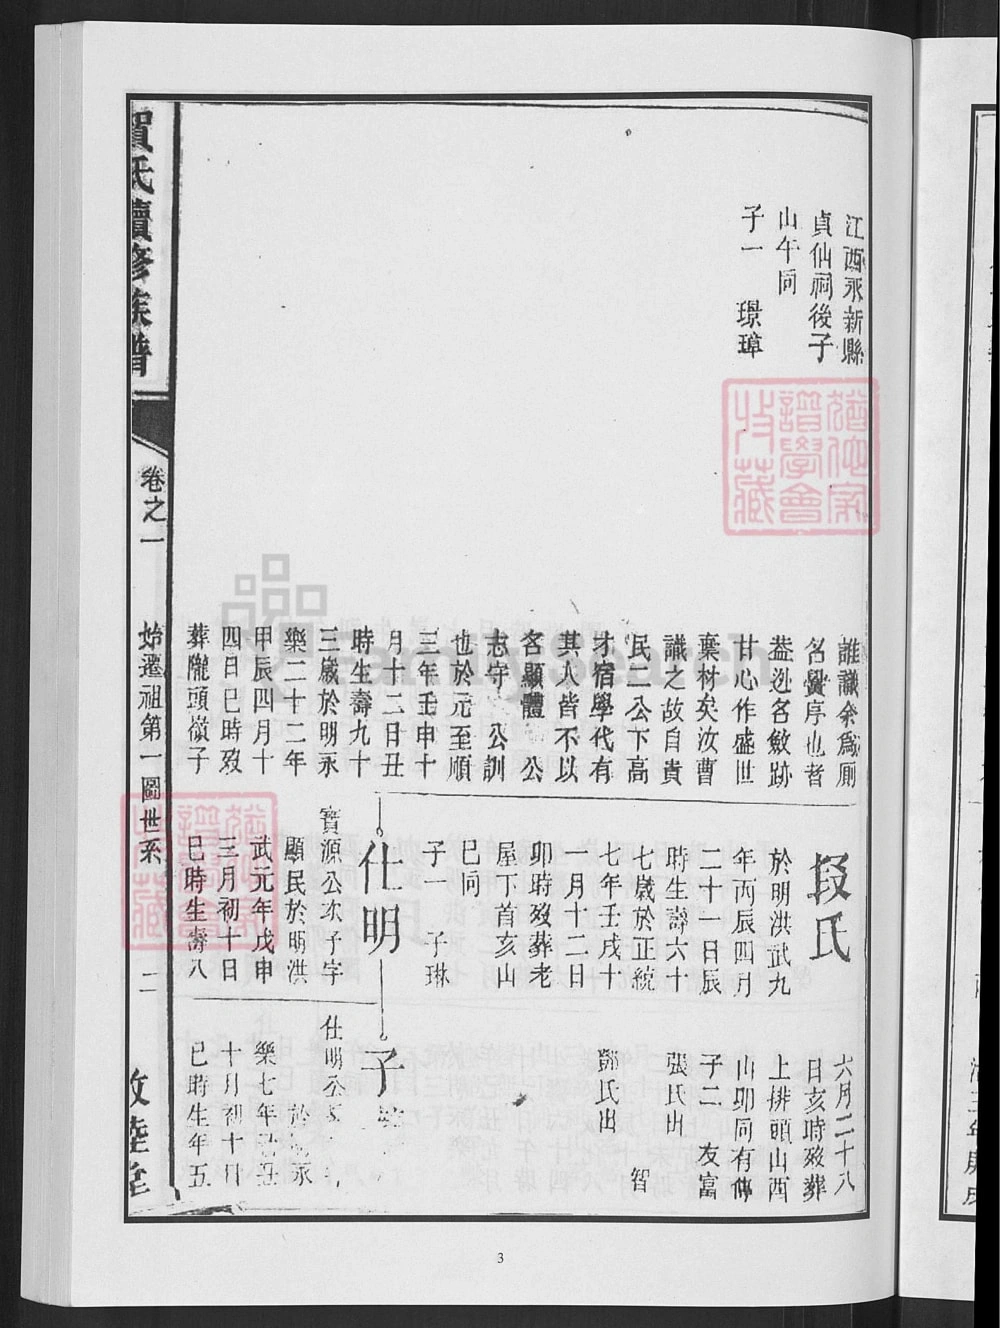 江西永新縣
貞仙祠後子
山午同
子一 璟璋
誰識余為厠
名釁序也者
葢遜名斂跡
甘心作盛世
棄材矣汝曹
識之故自貴
民二公下高
才宿學代有
其人皆不以
名顯體 公
志守 公訓
也於元至順
三年壬申十
月十二日丑
時生壽九十
三歲於明永
樂二十二年
甲辰四月十
四日巳時歿
葬隴頭嶺子
段氏
於明洪武九
年丙辰四月
二十一日辰
時生壽六十
七歲於正統
七年壬戌十
一月十二日
卯時歿葬老
屋下首亥山
巳同
子一 子琳
仕明
寶源公次子字
顯民於明洪
武元年戊申
三月初十日
巳時生壽八
六月二十八
日亥時歿葬
上排頭山酉
山卯同有傳
子二 友富
張氏出 智
鄧氏出
子
仕明公
於永
樂七年己丑
十月初十日
巳時生年五
賀氏續修族譜
卷之一
始遷祖第一圖世系
二
敦睦堂
猶他家
譜學會
收藏
猶他家
譜學會
收藏
FamilySearch
3